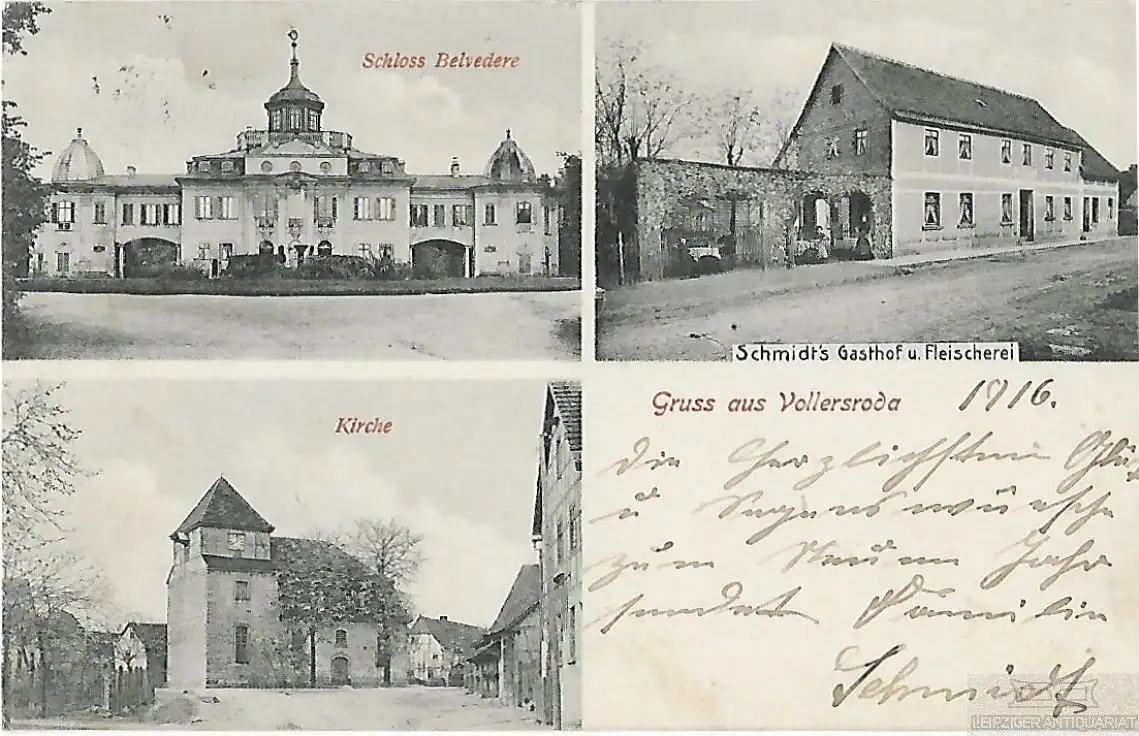 Schloss Belvedere
Schmidt's Gasthof u. Fleischerei
Kirche
Gruss aus Vollersroda
1916.
die herzlichsten Glü
u Segenswünsche
zum Neuen Jahr
sendet Familie
Schmidt
LEIPZIGER ANTIQUARIAT